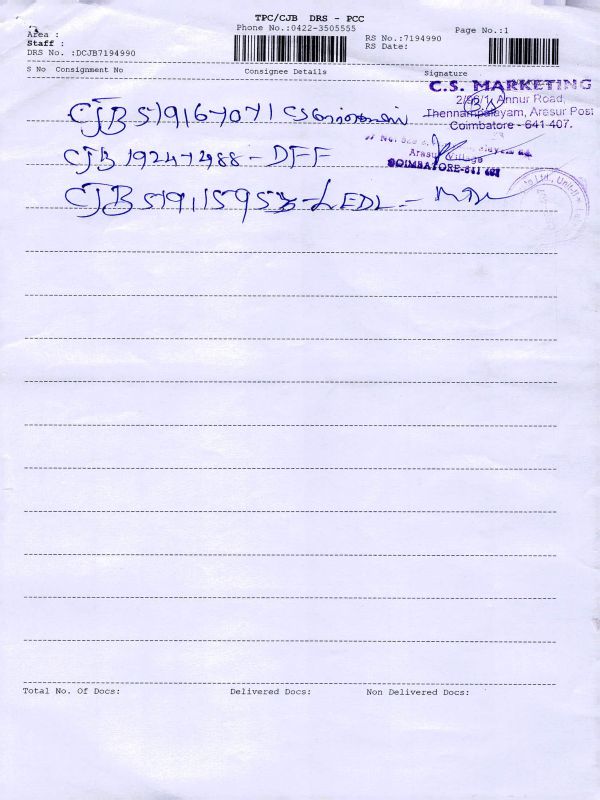 TPC/CJB DRS - PCC
Phone No.:0422-3505555
Page No.:1
Area :
RS No.:7194990
Staff :
RS Date:
DRS No. :DCJB7194990
S No Consignment No Consignee Details Signature
C.S. MARKETING
2/96/1, Annur Road,
Thennampalayam, Arasur Post
Coimbatore - 641 407.
CJB 519167071 CS
CJB 192474988 - DFF
Arasur Village
COIMBATORE-641 407
CJB 519115953 - LEDL -
Total No. Of Docs: Delivered Docs: Non Delivered Docs: